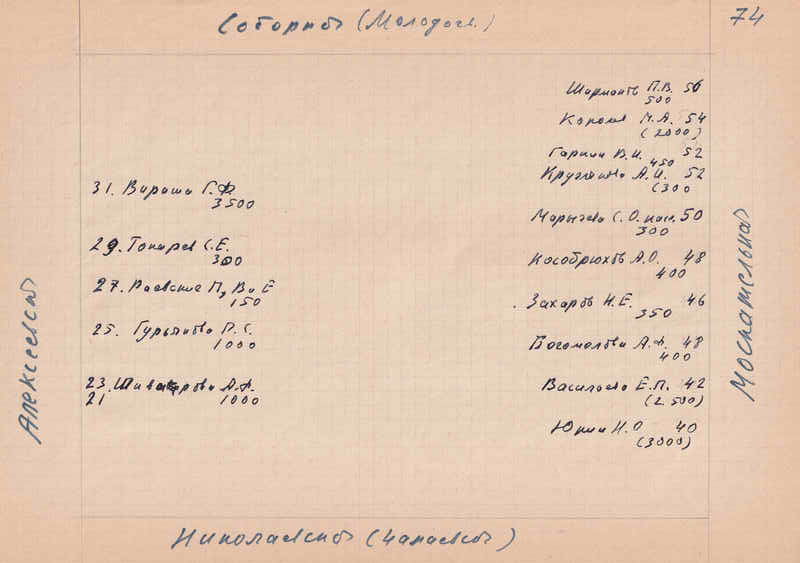 Соборной (Молодогв.)
74
Шармонтъ П.В. 56
500
Король М.А. 54
(2000)
Гарина В.И. 52
450
Кругликова А.И. 52
(300
31. Вираши Г.Ф.
3500
С.О. насл. 50
300
29. Токарев С.Е.
300
Кособрюхов А.О. 48
400
27. Раевские П, В и Е
150
Захаров Н.Е. 46
350
25. Гурьянова П.С.
1000
Богомолова А.Ф. 48
400
23. А.Ф.
21 1000
Васильева Е.П. 42
(2.500)
Юрин Н.О 40
(3000)
Алексеевской
Москательная
Николаевской (Чапаевской)